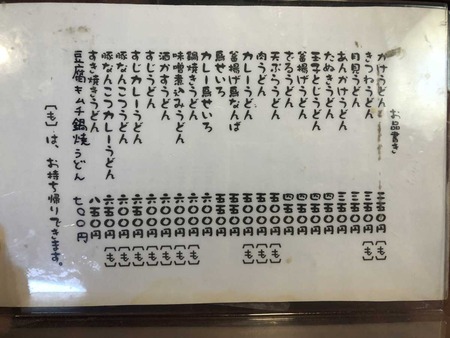 お品書き
かけうどん 三五〇円〔も〕
きつねうどん 三五〇円〔も〕
月見うどん 三五〇円
あんかけうどん 三五〇円
たぬきうどん 三五〇円
玉子とじうどん 四五〇円
釜揚げうどん 四五〇円
ざるうどん 四五〇円
天ぷらうどん 五〇〇円〔も〕
肉うどん 五〇〇円〔も〕
カレーうどん 五〇〇円〔も〕
釜揚げ鳥なんば 五五〇円
鳥せいろ 五五〇円
カレー鳥せいろ 六〇〇円
鍋焼きうどん 六〇〇円〔も〕
味噌煮込みうどん 六〇〇円〔も〕
酒かすうどん 六〇〇円〔も〕
すじうどん 六〇〇円〔も〕
すじカレーうどん 六五〇円〔も〕
豚なんこつうどん 六〇〇円〔も〕
豚なんこつカレーうどん 六五〇円〔も〕
すき焼きうどん 八五〇円
豆腐キムチ鍋焼うどん 七〇〇円
〔も〕は、お持ち帰りできます。